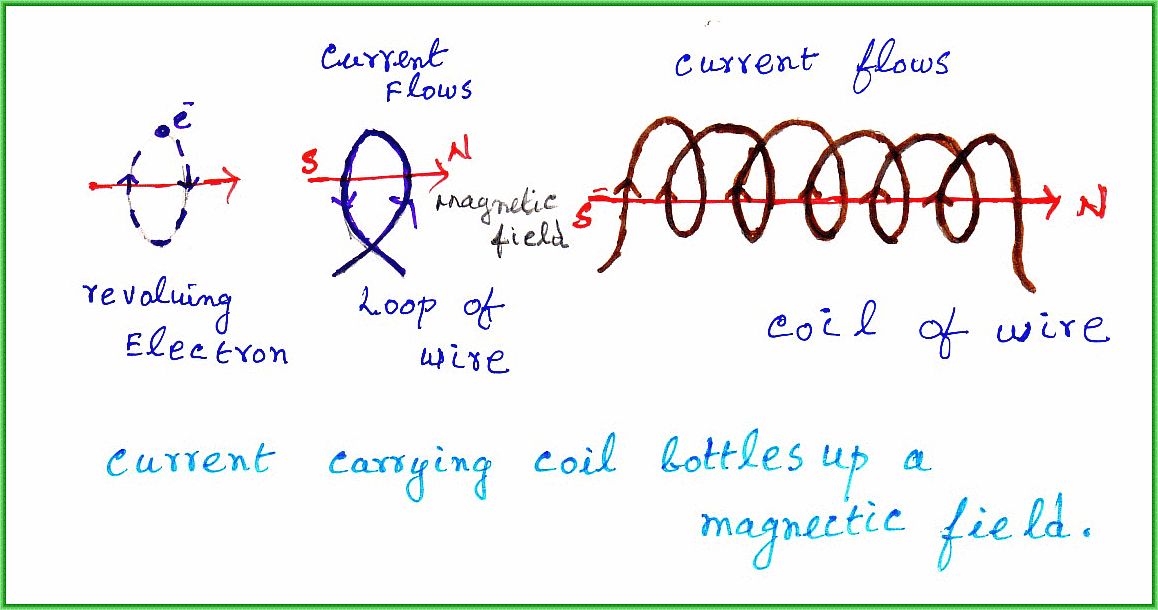 current
Flows
current flows
e-
S
N
magnetic
field
S
N
revoluing
Electron
Loop of
wire
coil of wire
current carrying coil bottles up a
magnectic field.